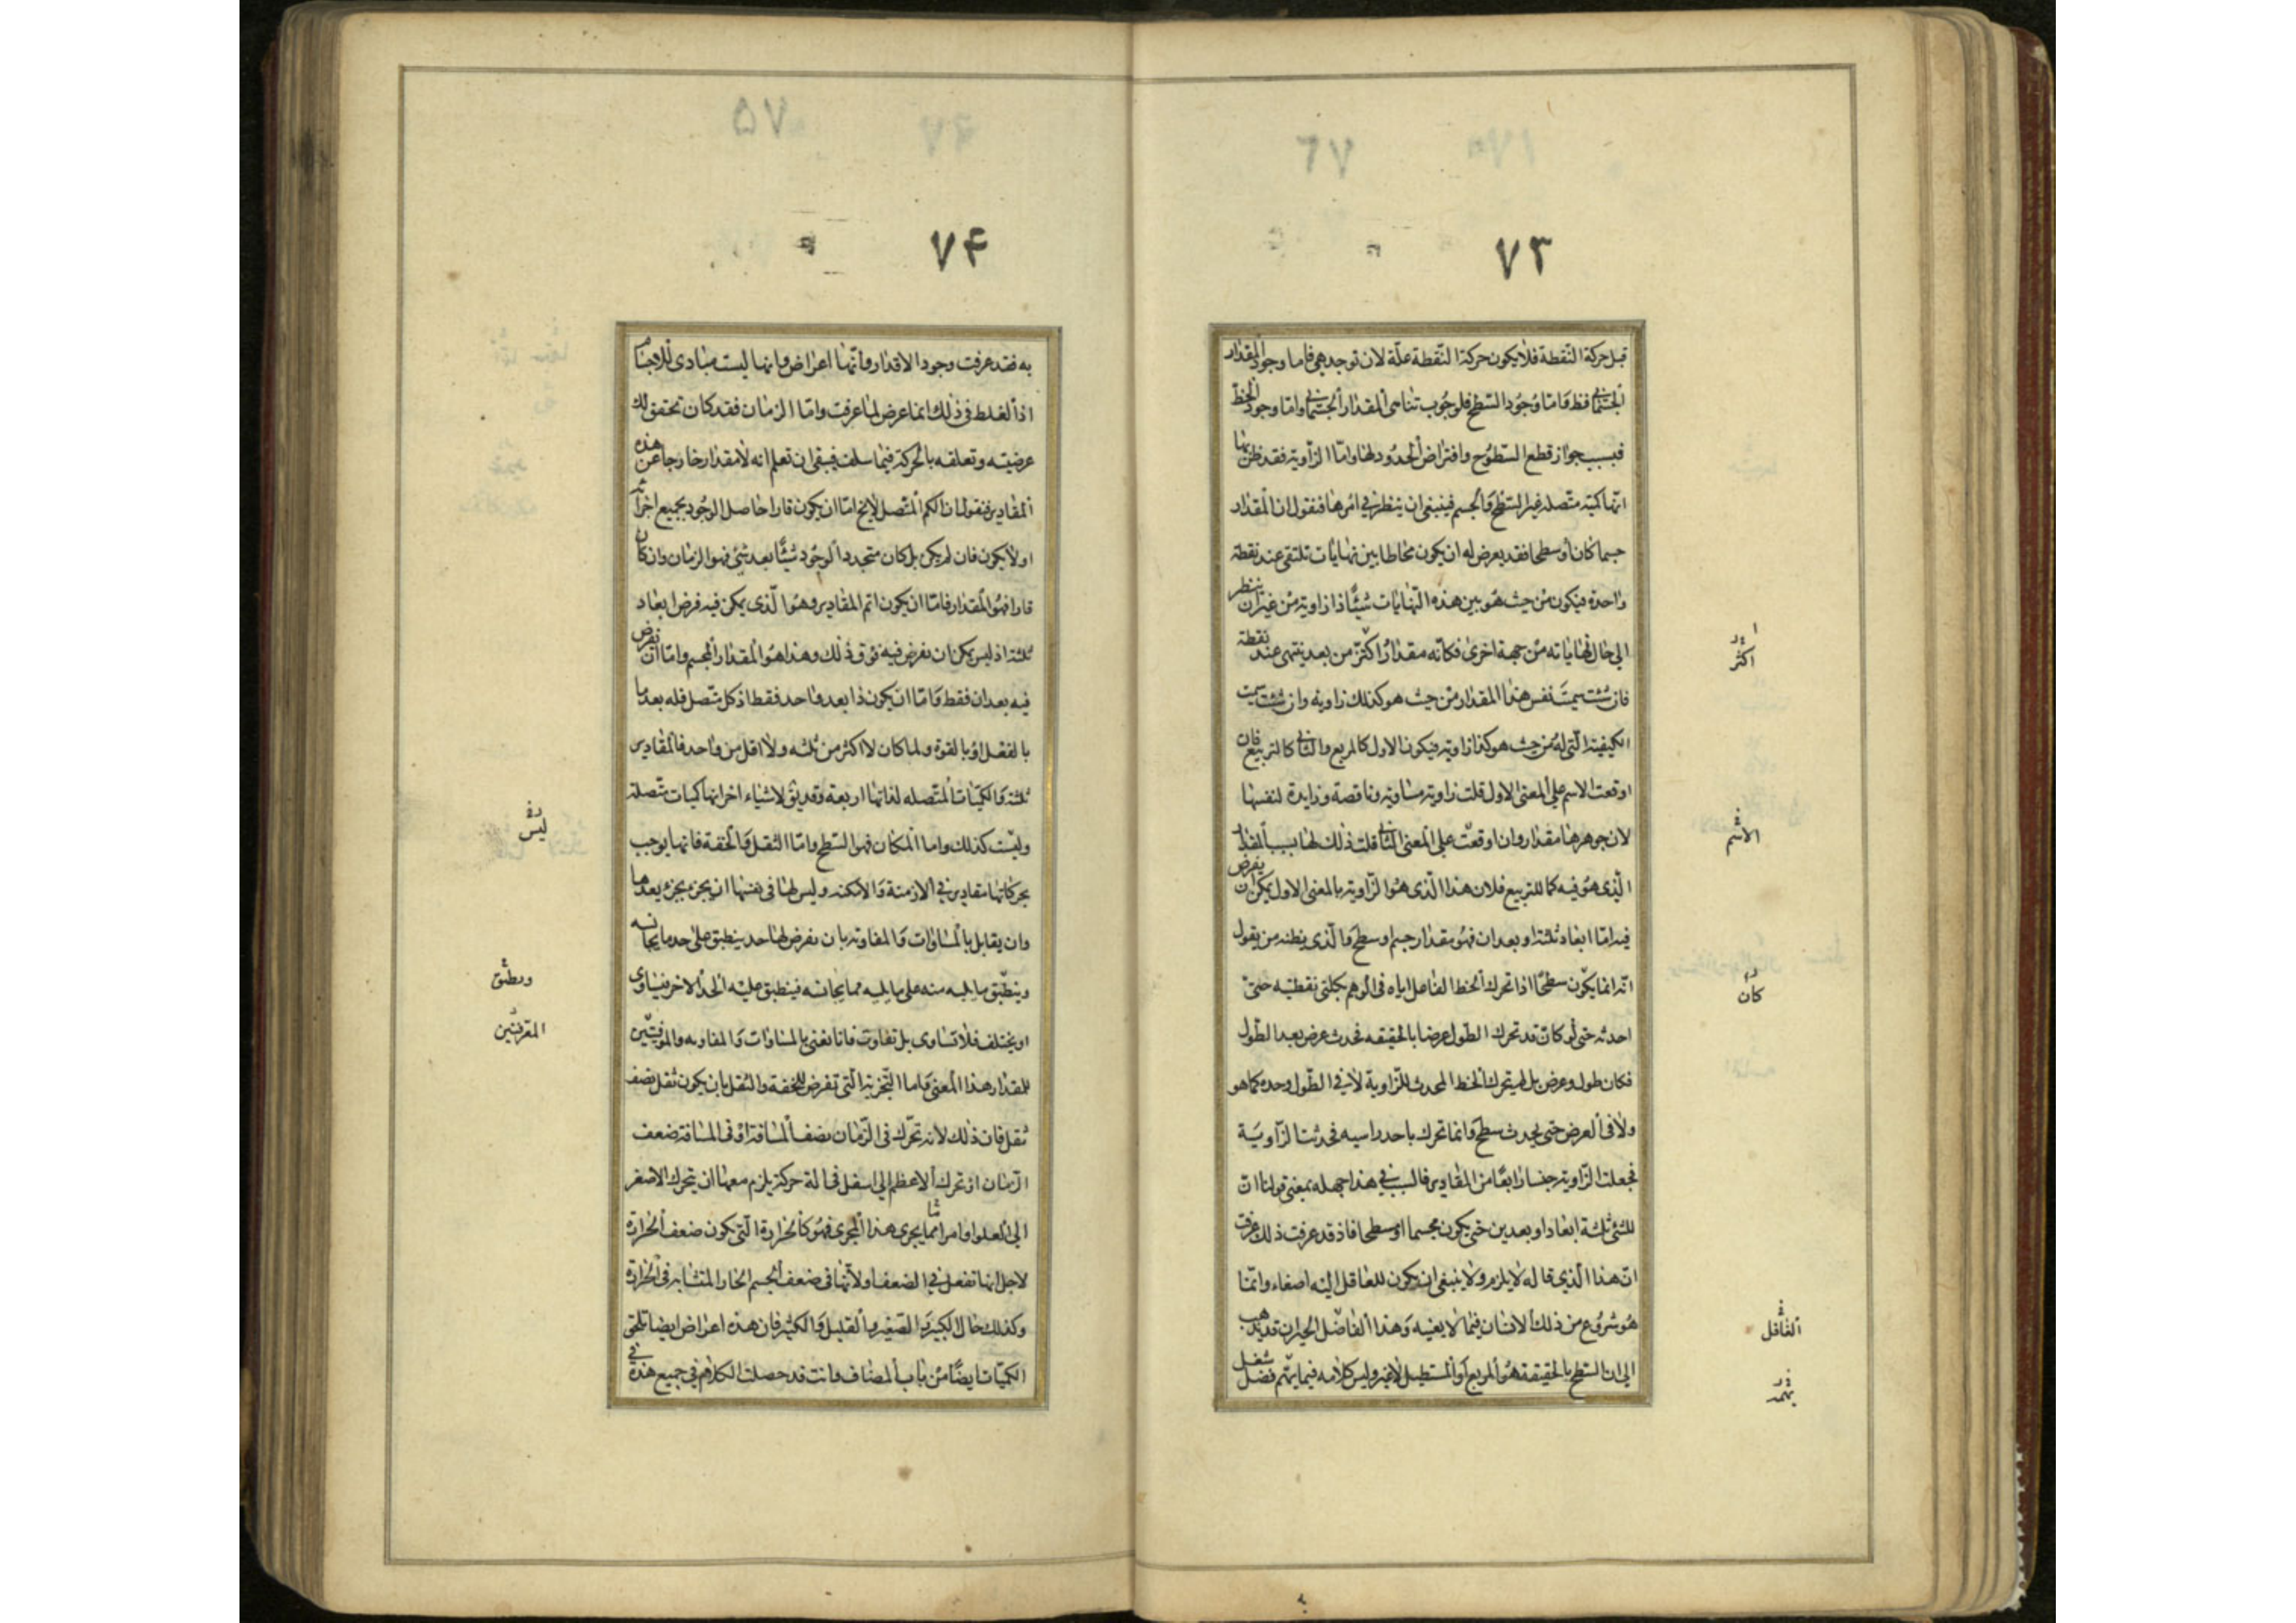 ٧٣
قبل حركة النّقطة فلا يكون حركة النّقطة علّة لان توجد هي فاما وجود المقدار
الجسماني فظ وَامّا وجُود السّطح فلوجُوب تناهى المقدار الجسماني وامّا وجود الخطّ
فبسبب جواز قطع السّطوُح وافتراض الحدُود لهٰا وامّا الزّاوية فقد ظن بها
انّها كميّة متّصلة غير السّطح وَالجسم فينبغى ان ينظر في امرهٰا فنقول ان المقدار
جسما كٰان أو سطحا فقد يعرض له ان يكون محٰاطا بين نهٰايٰات تلتقى عند نقطة
وٰاحدة فيكون من حيث هُو بين هذه النّهٰايات شيئًا ذا زاوية من غير ان ينظر
الى حٰال نهٰايٰاته من جهة اخرى فكانّه مقدٰار اكثر من بعد ينتهى عند نقطة
فان شئت سميت نفس هذا المقدٰار من حيث هو كذلك زاوية وان شئت سميت
الكيفية الّتى له من حيث هو كذا زاوية فيكون الاول كالمربع والثاني كالتربيع فان
اوقعت الاسم على المعنى الاول قلت زاوية مساوية وناقصة وزايدة لنفسها
لان جوهرهٰا مقدٰار وان اوقعت على المعنى الثاني قلت ذٰلك لهٰا بسبب المقدار
الّذى هوُ فيه كما للتربيع فلان هذا الّذى هُو الزّاوية بالمعنى الاول يمكن ان يفرض
فيه امّا ابعٰاد ثلثة او بعدان فهُو مقدٰار جسم او سطح وَالّذى يظنه من يقول
انّه انما يكوّن سطحًا اذا تحرك الخط الفٰاعل اياه فى الوهم بكلتى نقطتيه حتىّ
احدثه حتى لو كان قد تحرك الطّول عرضا بالحقيقه فحدث عرض بعد الطّول
فكان طول وعرض بل لم يتحرك الخط المحدث للزّاوية لا في الطّول وحده كما هو
ولا فى العرض حتى يحدث سطح وَانما تحرك باحد راسيه فحدثت الزّاويَة
فجعلت الزّاوية جنسا رٰابعًا من المقادير فالسبب في هذا جهله بمعنى قولنا ان
للشئ ثلثة ابعٰاد او بعدين حتى يكون مجسما او سطحا فاذ قد عرفت ذلك عرفت
انّ هذا الّذى قاله لا يلزم ولا ينبغى ان يكون للعٰاقل اليه اصغاء وانّما
هُو شروُع من ذلك الانسان فيمٰا لا يعنيه وَهذا الفاضل الحيران قد يذهب
الى ان السّطح بالحقيقة هُو المربع أو المستطيل لاغير وليس كلٰامه فيما يتهم فضل شغل
اكثر
الاسم
كان
الغافل
٧۴
به فقد عرفت وجود الاقدار وَانّها اعرٰاض وانها ليست مبٰادى للاجسٰام
اذ الغلط فى ذٰلك انما عرض لمٰا عرفت وامّا الزمٰان فقد كان تحقق لك
عرضيته وتعلقه بالحركة فيمٰا سلف فيبقى ان تعلم انه لا مقدٰار خارجا عن هذه
المقٰادير فنقول ان الكم المتّصل لا يخ امّا ان يكون قارا حٰاصل الوجُود بجميع اجزائه
او لا يكون فان لم يكن بل كان متجدد الوجُود شيئًا بعد شئ فهو الزمٰان وان كان
قارا فهُو المقدٰار فامّا ان يكون اتم المقٰادير وهُو الّذى يمكن فيه فرض ابعٰاد
ثلثة اذ ليس يمكن ان يفرض فيه فوق ذٰلك وهذا هُو المقدٰار المجسم وامّا ان يفرض
فيه بعدان فقط وَامّا ان يكون ذا بعد وٰاحد فقط اذ كل متّصل فله بعد ما
بالفعل اوْ بالقوة ولما كان لا اكثر من ثلثه ولا اقل من وٰاحد فالمقٰادير
ثلثة وَالكميّات المتّصله لذاتها اربعة وقد يق لاشيٰاء اخر انها كميات متّصلة
وليست كذلك واما المكٰان فهو السّطح وامّا الثقل وَالخفة فانها يوجب
بحركاتها مقادير في الازمنة وَالامكنه وليس لهٰا فى نفسها ان يجزء بجزء يعدها
وان يقابل بالمسٰاوٰات وَالمفاوته بان يفرض لهٰا حد ينطبق على حد ما يجانسه
وينطبق ما يليه منه على ما يليه مما يجانسه فينطبق عليه الحد الاخر فيسٰاوى
او يختلف فلا تسٰاوى بل تفاوت فانا نعنى بالمسٰاوات وَالمفاوته والمعرفتين
للمقدٰار هذا المعنى وَاما التّجزية الّتى تفرض للخفة والثقل بان يكون ثقل نصف
ثقل فان ذٰلك لانه تحرّك فى الزّمٰان نصف المسٰافة اوْ فى المسٰافة ضعف
الزمٰان او تحرك الاعظم الى اسفل فى الة حركة يلزم معها ان يتحرك الاصغر
الى العلو او امر اخر مما يجرى هذا المجرى فهُو كالحرٰارة الّتى يكون ضعف الحرٰارة
لاجل انها تفعل في الضعف او لانّها فى ضعف الجسم الحٰار المتشابه فى الحرٰارة
وكذلك حٰال الكبير وَالصّغير والقليل وَالكثير فان هذه اعرٰاض ايضا تلحق
الكميّات ايضًا من باب المضاف وانت قد حصلت الكلام في جميع هذه في
ليس
وينطبق
المعرفتين
٧۵
٦٧